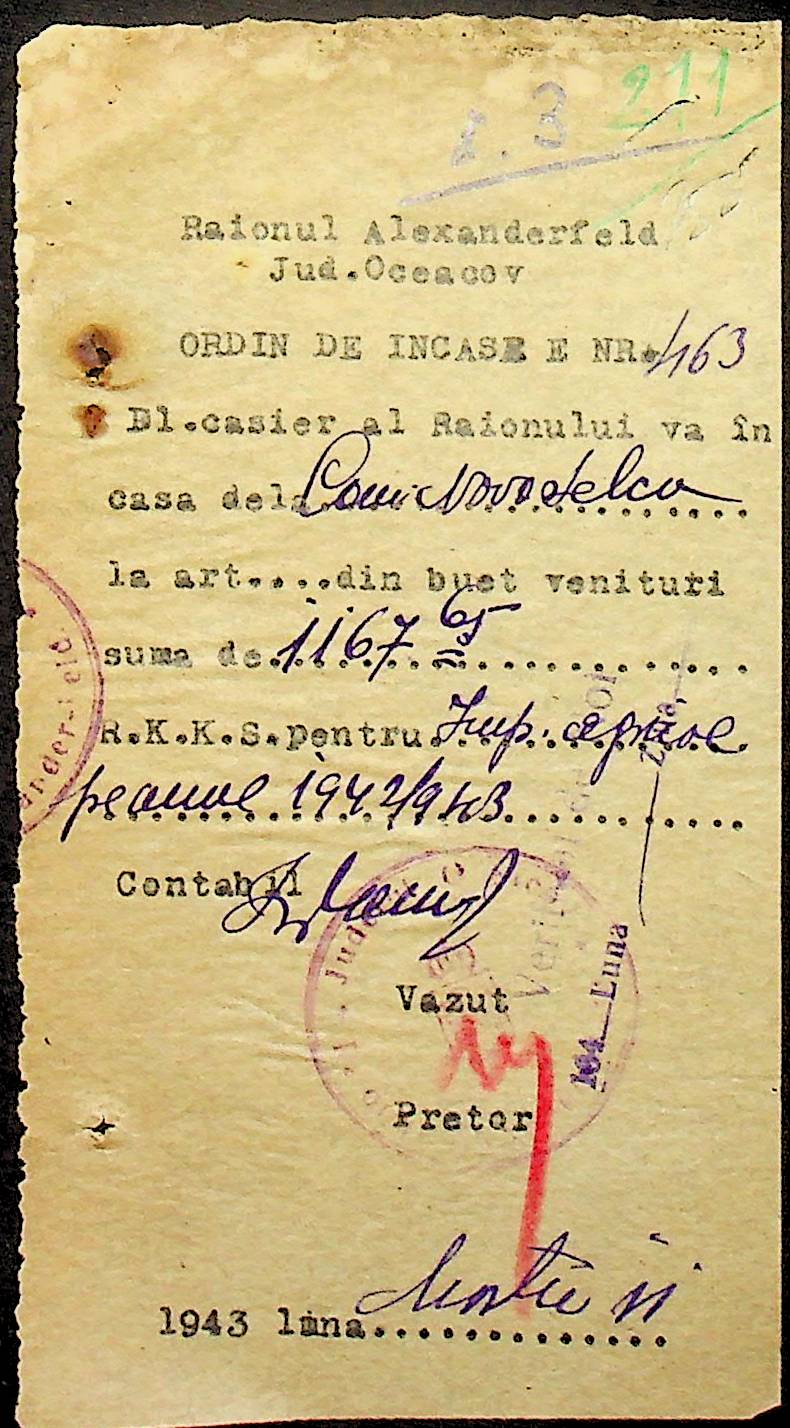 211
3
Raionul Alexanderfeld
Jud.Oceacov
ORDIN DE INCASE E NR. 463
Dl.casier al Raionului va în
casa dela Com. Novoselca
la art....din buet venituri
suma de 1167 65
R.K.K.S.pentru Imp. agricol
pe anul 1942/943
Contabil
Vazut
Pretor
1943 luna Martie 11
ander-feld
Jude
Verif
194 Luna
Ziua